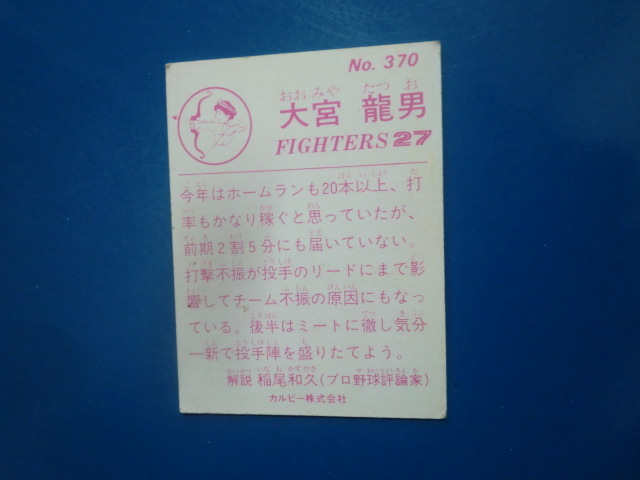 No. 370
おおみや たつお
大宮 龍男
FIGHTERS 27
今年はホームランも20本以上、打
率もかなり稼ぐと思っていたが、
前期2割5分にも届いていない。
打撃不振が投手のリードにまで影
響してチーム不振の原因にもなっ
ている。後半はミートに徹し気分
一新で投手陣を盛りたてよう。
解説 稲尾和久(プロ野球評論家)
カルビー株式会社